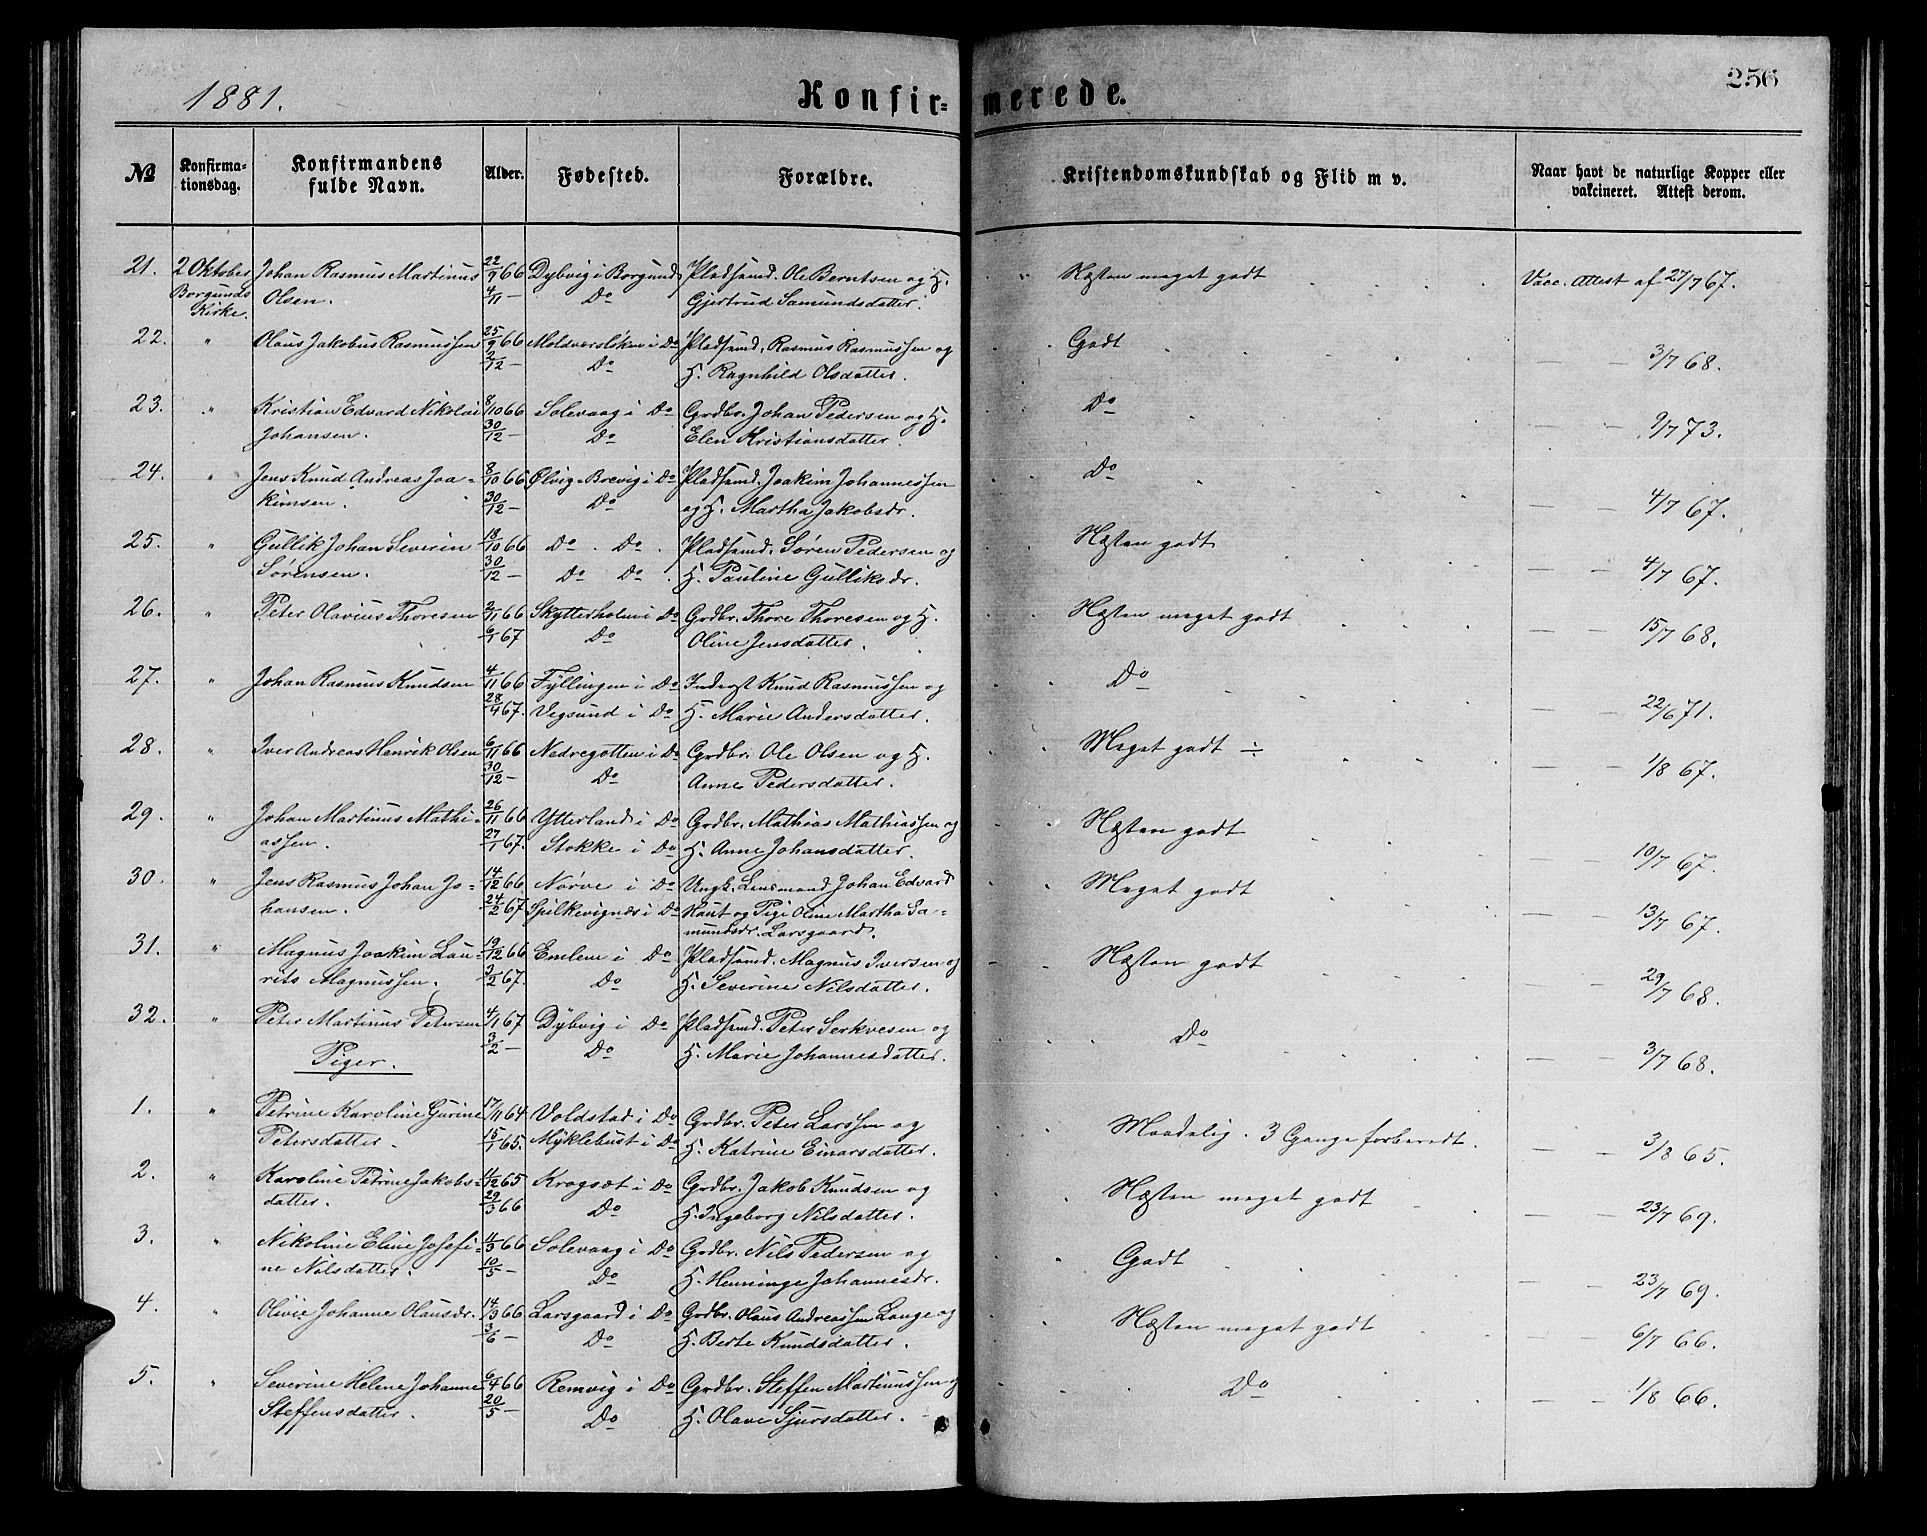 1881.
Konfir-
merede.
256
№
Konfirma-
tionsdag.
Konfirmandens
fulde Navn.
Alder.
Fødested.
Forældre.
Kristendomskundskab og Flid m v.
Naar havt de naturlige Kopper eller
vakcineret. Attest derom.
21. 2 Oktober Johan Rasmus Martinus 22/9 66 Dybvig i Borgund Pladsmd. Ole Berntsen og H. Næsten meget godt Vacc. Attest af 27/7 67.
Borgunds Olsen. 4/11 — Do Gjertrud Samundsdatter.
Kirke.
22. " Olaus Jakobus Rasmussen 25/9 66 i Do Pladsmd. Rasmus Rasmussen og Godt — — 3/7 68.
2/12 — Do H. Ragnhild Olsdatter.
23. " Kristian Edvard Nikolai 8/10 66 Solevaag i Do Grdbr. Johan Pedersen og H. Do — — 9/7 73.
Johansen. 30/12 — Do Elen Kristiansdatter.
24. " Jens Knud Andreas Joa- 8/10 66 Ølvig-Brevig i Do Pladsmd. Joakim Johannessen Do — — 4/7 67.
kimsen. 30/12 — Do og H. Martha Jakobsdr.
25. " Gullik Johan Severin 18/10 66 Do . Do . Pladsmd. Søren Pedersen og Næsten godt — — 4/7 67.
Sørensen. 30/12 — Do Do . H. Pauline Gulliksdr.
26. " Peter Olavius Thoresen 2/11 66 Skytterholm i Do Grdbr. Thore Thoresen og H. Næsten meget godt — — 15/7 68.
6/1 67 Do Oline Jensdatter.
27. " Johan Rasmus Knudsen 4/11 66 Fyllingen i Do Inderst Knud Rasmussen og Do — — 22/6 71.
28/4 67. Vegsund i Do H. Marie Andersdatter.
28. " Iver Andreas Henrik Olsen 6/11 66 Nedregotten i Do Grdbr. Ole Olsen og H. Meget godt ÷ — — 1/8 67.
30/12 — Do Anne Pedersdatter.
29. " Johan Martinus Mathi- 26/11 66 Ytterland i Do Grdbr. Mathias Mathiassen og Næsten godt — — 10/7 67.
assen. 27/1 67. Stokke i Do H. Anne Johansdatter.
30. " Jens Rasmus Johan Jo- 14/12 66 Nørve i Do Ungk. Lensmand Johan Edvard Meget godt — — 13/7 67.
hansen. 24/2 67. Spilkevignæs i Do Raut og Pige Oline Martha Sa-
mundsdr. Larsgaard.
31. " Magnus Joakim Lau- 19/12 66 Emlem i Do Pladsmd. Magnus Iversen og Næsten godt — — 29/7 68.
rits Magnussen. 3/2 67. Do H. Severine Nilsdatter.
32. " Peter Martinus Petersen 4/1 67 Dybvig i Do Pladsmd. Peter Serkvesen og Do — — 3/7 68.
3/2 — Do H. Marie Johannesdatter.
Piger.
1. " Petrine Karoline Gurine 17/11 64 Voldstad i Do Grdbr. Peter Larssen og Maadelig. 3 Gange forberedt. — — 3/8 65.
Petersdatter. 15/1 65. Myklebust i Do H. Katrine Einarsdatter.
2. " Karoline Petrine Jakobs- 11/12 65 Krogsæt i Do Grdbr. Jakob Knudsen og Næsten meget godt — — 23/7 69.
datter. 29/3 66 Do H. Ingeborg Nilsdatter.
3. " Nikoline Eline Josefi- 11/3 66 Solevaag i Do Grdbr. Nils Pedersen og Godt — — 23/7 69.
ne Nilsdatter. 10/5 — Do H. Henninge Johannesdr.
4. " Olivie Johanne Olausdr. 14/3 66 Larsgaard i Do Grdbr. Olaus Andreassen Lange og Næsten meget godt — — 6/7 66.
3/6 — Do H. Berte Knudsdatter.
5. " Severine Helene Johanne 6/4 66 Remvig i Do Grdbr. Steffen Martinussen og Do — — 1/8 66.
Steffensdatter. 20/5 — Do H. Olave Sjursdatter.